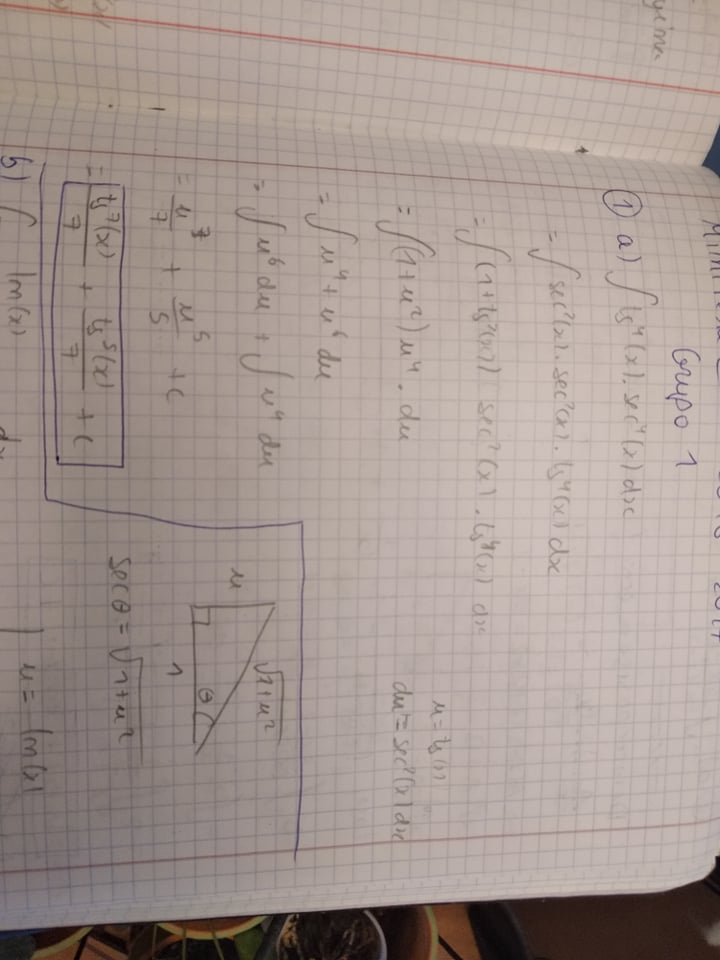 Grupo 1
① a) ∫ tg⁴(x). sec⁴(x) dx
= ∫ sec²(x). sec²(x). tg⁴(x) dx
= ∫ (1+tg²(x)) sec²(x). tg⁴(x) dx
u = tg(x)
du = sec²(x) dx
= ∫ (1+u²) u⁴. du
= ∫ u⁴ + u⁶ du
= ∫ u⁶ du + ∫ u⁴ du
= u⁷/7 + u⁵/5 + c
= tg⁷(x)/7 + tg⁵(x)/7 + c
√1+u²
u
θ
1
sec θ = √1+u²
b) ∫ ln(x) dx
u = ln(x)